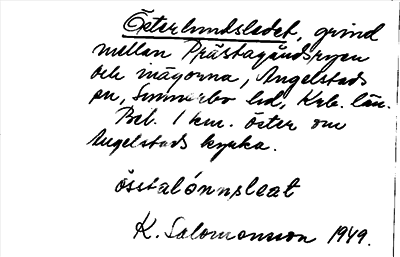 Österlundsledet, grind
mellan Prästagårdsryen
och inägorna, Angelstads
sn, Sunnerbo hd, Krb. län.
Bel. 1 km. öster om
Angelstads kyrka.
össtalönnsleat
K. Salomonsson 1949.